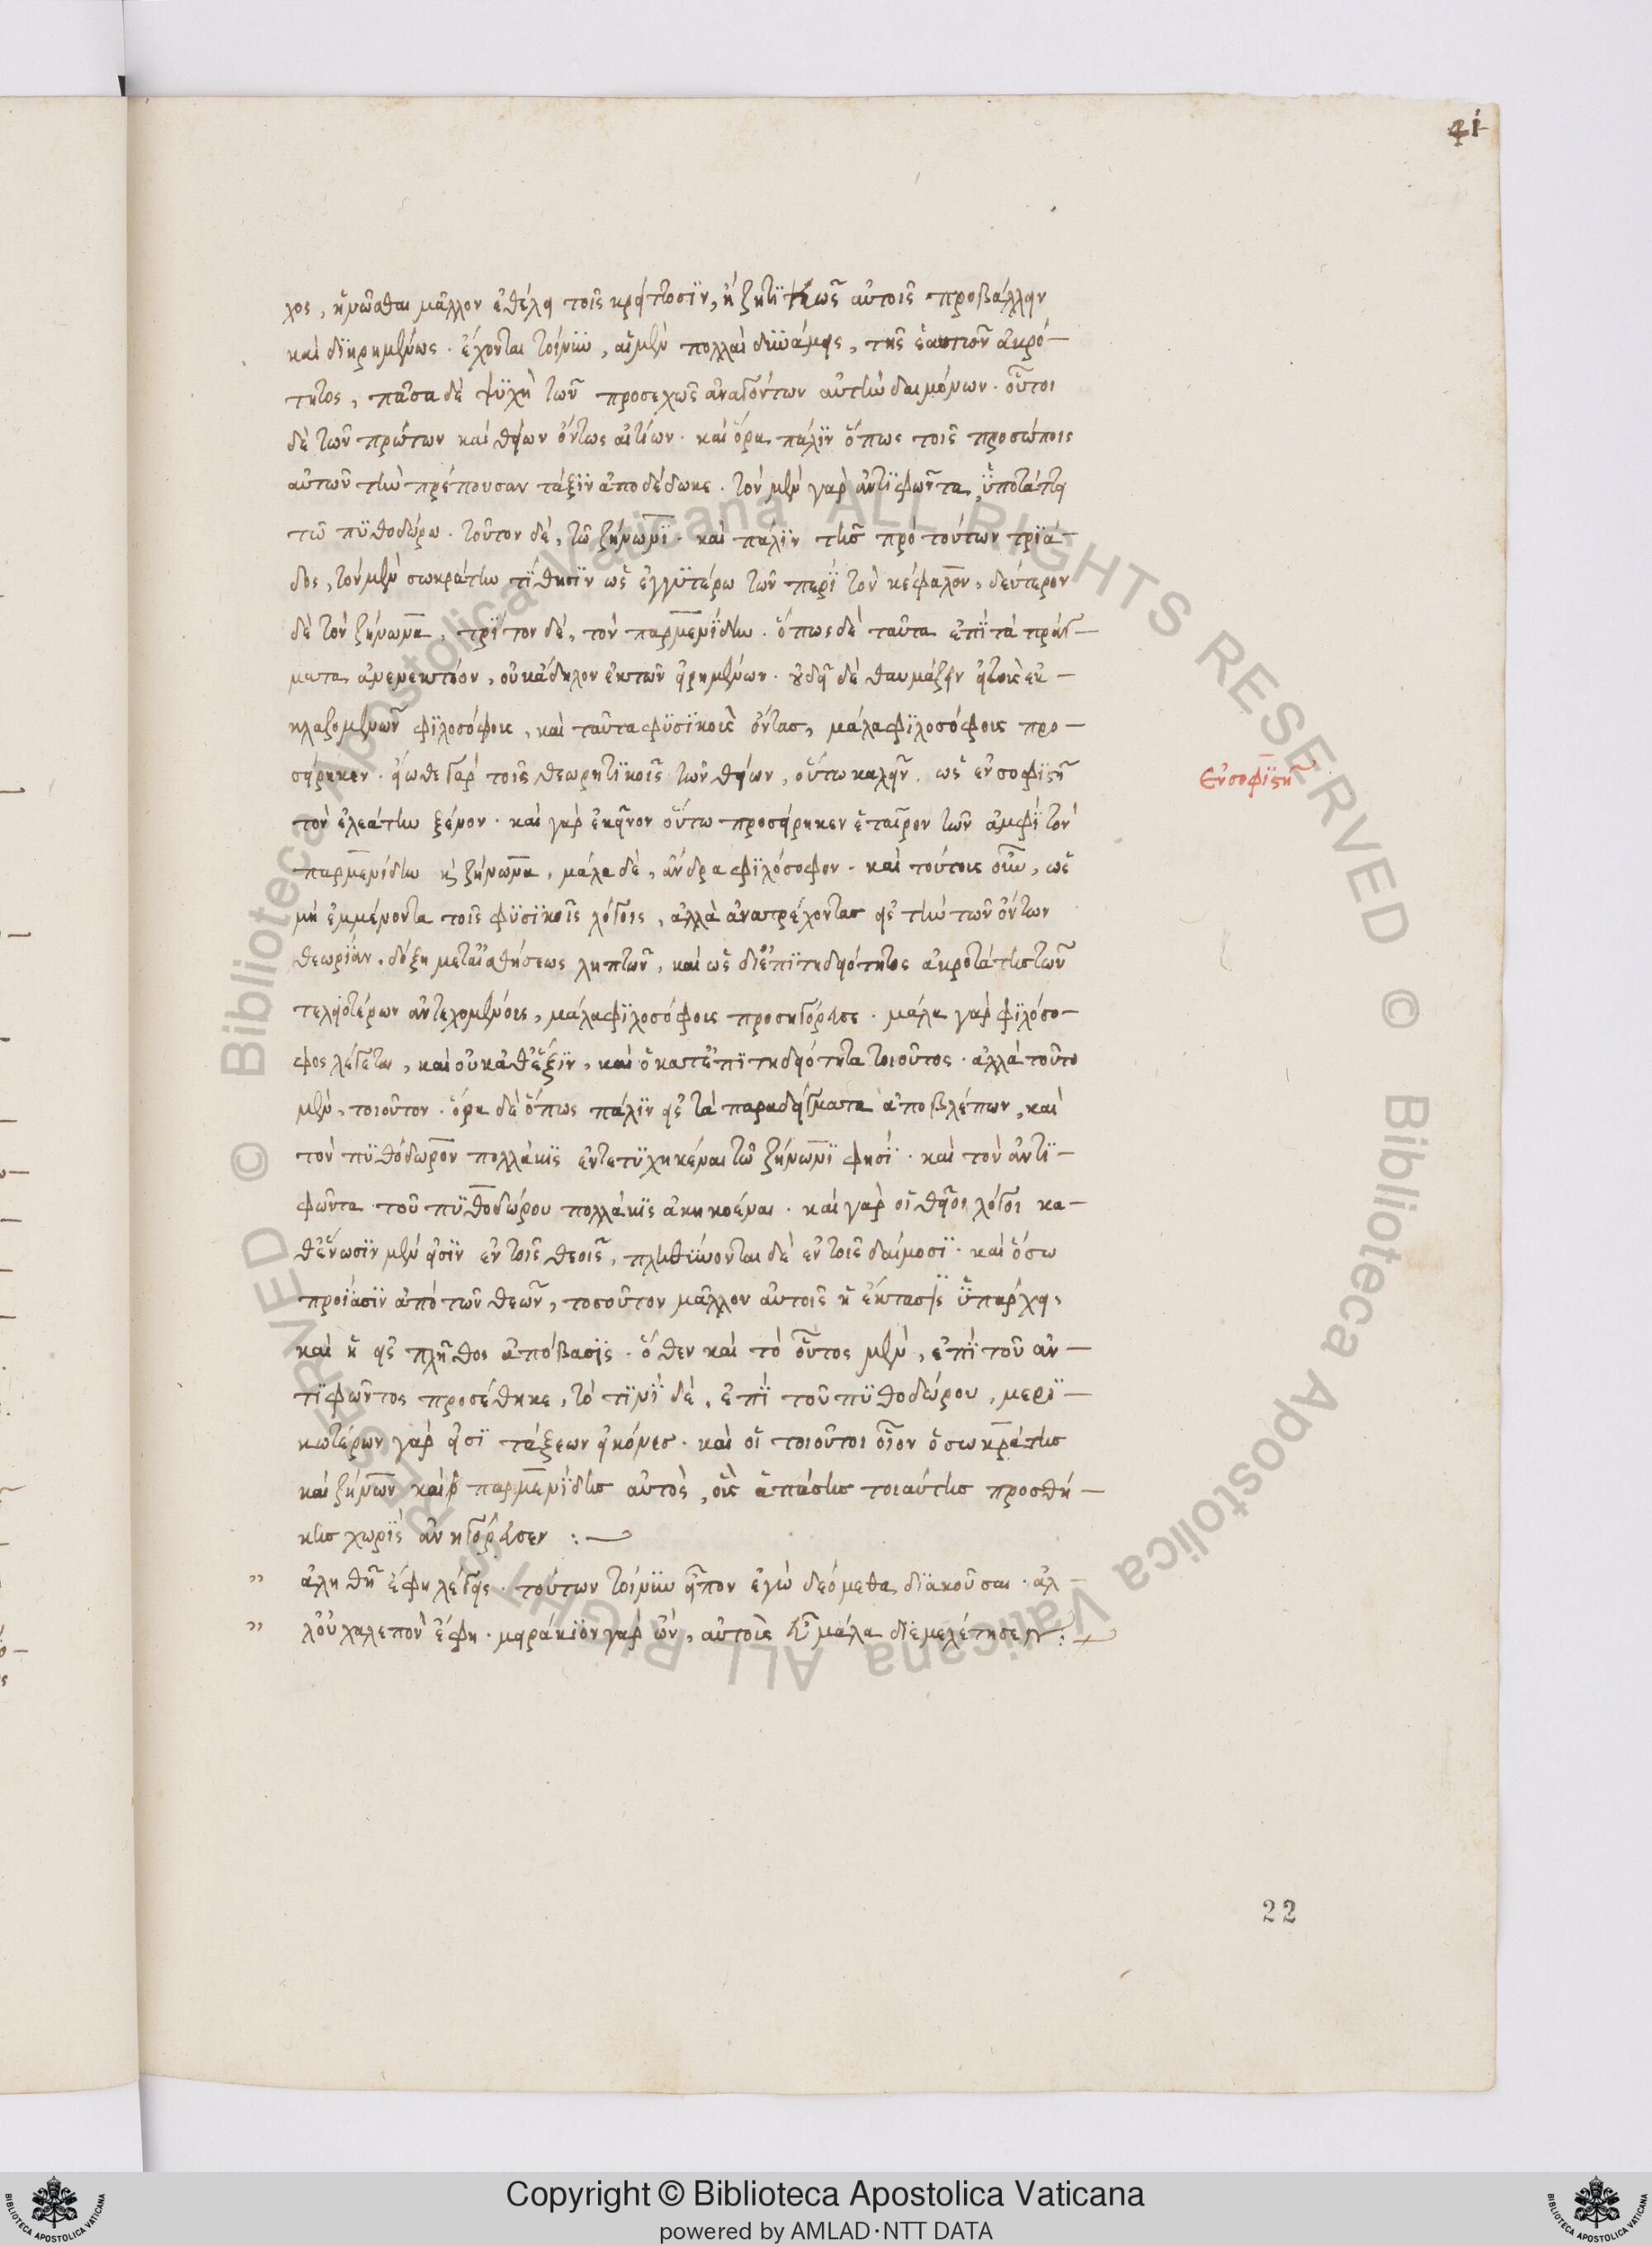 41
χος, ἡνῶσθαι μᾶλλον ἐθέλει τοῖς κρείττοσϊν, ἢ ζητϊκῶς αὐτοῖς προβάλλειν
καὶ διῃρημένως. ἔχονται τοίνυν, αἱ μὲν πολλαὶ δυνάμεις, τῆς ἑαυτῶν ἀκρό-
τητος, πᾶσα δὲ ψϋχὴ τῶν προσεχῶς ἀναγόντων αὐτὴν δαιμόνων. οὗτοι
δὲ τῶν πρώτων καὶ θείων ὄντως αἰτίων. καὶ ὅρα πάλϊν ὅπως τοῖς προσώποις
αὐτῶν τὴν πρέπουσαν τάξϊν ἀποδέδωκε. τὸν μὲν γὰρ ἀντϊφῶντα, ὑποτάττει
τῶ πϋθοδώρω. τοῦτον δὲ, τῶ ζήνωνϊ. καὶ πάλϊν τῆς πρὸ τούτων τρϊά-
δος, τὸν μὲν σωκράτην τίθησϊν ὡς ἐγγϋτέρω τῶν περὶ τὸν κέφαλον, δεύτερον
δὲ τὸν ζήνωνα, τρίτον δὲ, τὸν παρμενίδην. ὅπως δὲ ταῦτα ἐπὶ τὰ πράγ-
ματα ἀνενεκτέον, οὐκ ἄδηλον ἐκ τῶν εἰρημένων. οὐδεῖ δὲ θαυμάζειν εἰ τοὺς ἐκ
κλαζομενῶν φϊλοσόφους, καὶ ταῦτα φϋσϊκοὺς ὄντας, μάλα φϊλοσόφους προ-
σείρηκεν. εἴωθε γὰρ τοὺς θεωρητϊκοὺς τῶν θείων, οὕτω καλεῖν, ὡς ἐν σοφϊστῆ
τὸν ἐλεάτην ξένον. καὶ γὰρ ἐκεῖνον οὕτω προσείρηκεν ἑταῖρον τῶν ἀμφὶ τὸν
παρμενίδην καὶ ζήνωνα, μάλα δὲ, ἄνδρα φϊλόσοφον. καὶ τούτους οὖν, ὡς
μὴ ἐμμένοντα τοῖς φϋσϊκοῖς λόγοις, ἀλλὰ ἀνατρέχοντας εἰς τὴν τῶν ὄντων
θεωρίαν, δόξη μετ' αἰσθήσεως ληπτῶν, καὶ ὡς δι' ἐπϊτηδειότητος ἀκροτάτης τῶν
τελειοτέρων ἀντεχομένους, μάλα φϊλοσόφους προσηγόρευσε. μάλα γὰρ φϊλόσο-
φος λέγεται, καὶ οὐ καθ' ἕξϊν, καὶ ὁ κατ' ἐπϊτηδειότητα τοιοῦτος. ἀλλὰ τοῦτο
μὲν, τοιοῦτον. ὅρα δὲ ὅπως πάλϊν εἰς τὰ παραδείγματα ἀποβλέπων, καὶ
τὸν πϋθόδωρον πολλάκϊς ἐντετϋχηκέναι τῶ ζήνωνϊ φησί. καὶ τὸν ἀντϊ-
φῶντα τοῦ πϋθοδώρου πολλάκϊς ἀκηκοέναι. καὶ γὰρ οἱ θεῖοι λόγοι κα-
θ' ἕνωσϊν μὲν εἰσϊν ἐν τοῖς θεοῖς, πληθύνονται δὲ ἐν τοῖς δαίμοσϊ. καὶ ὅσω
προΐασϊν ἀπὸ τῶν θεῶν, τοσοῦτον μᾶλλον αὐτοῖς ἡ ἔκτασϊς ὑπάρχει,
καὶ ἡ εἰς πλῆθος ἀπόβασϊς. ὅθεν καὶ τὸ οὗτος μὲν, ἐπὶ τοῦ ἀν-
τϊφῶντος προσέθηκε, τὸ τϊνὶ δὲ, ἐπὶ τοῦ πϋθοδώρου, μερϊ-
κωτέρων γὰρ εἰσϊ τάξεων εἰκόνες. καὶ οἱ τοιοῦτοι οἷον ὁ σωκράτης
καὶ ζήνων καὶ παρμενίδης αὐτὸς, οὓς ἁπάσης τοιαύτης προσθή-
κης χωρὶς ἀνηγόρευσεν :—
" ἀληθῆ ἔφη λέγεις. τούτων τοίνυν εἶπον ἐγὼ δεόμεθα διακοῦσαι. ἀλ-
" λ' οὐ χαλεπὸν ἔφη. μειράκϊον γὰρ ὢν, αὐτοὺς εὖ μάλα διεμελέτησεν :—
Ἐν σοφϊστῆ
22
Copyright © Biblioteca Apostolica Vaticana
powered by AMLAD·NTT DATA
© Biblioteca Apostolica Vaticana ALL RIGHTS RESERVED © Biblioteca Apostolica Vaticana ALL RIGHTS RESERVED